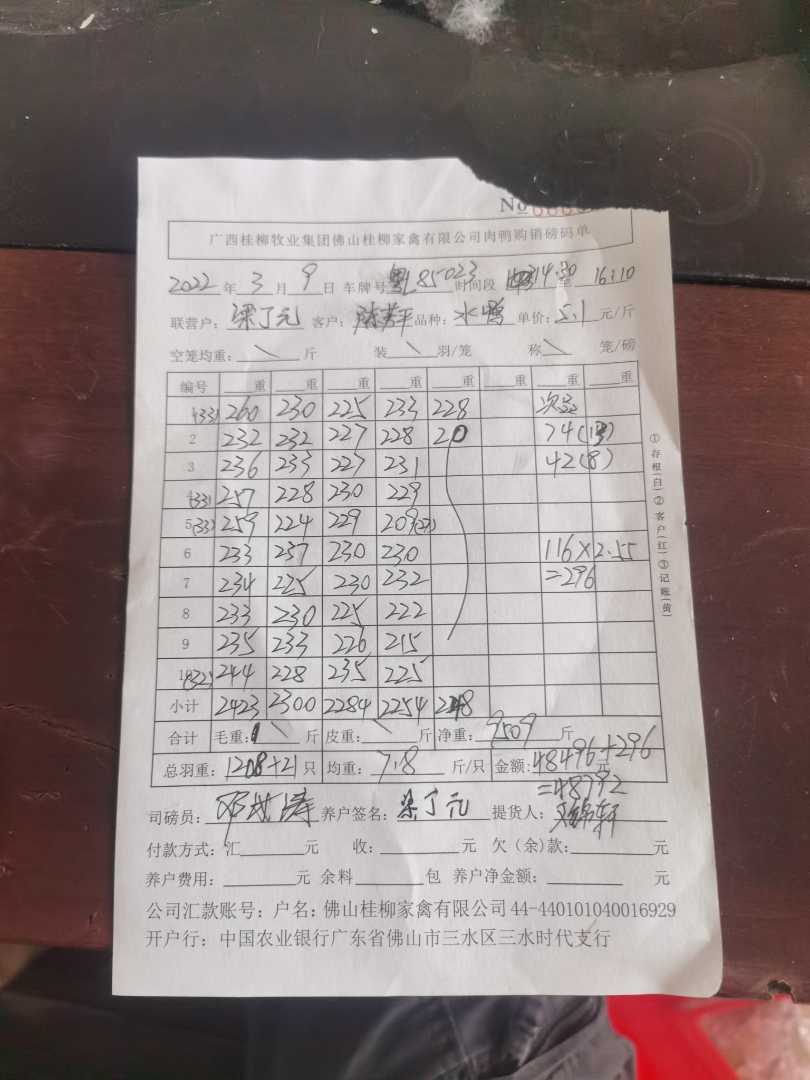 No
广西桂柳牧业集团佛山桂柳家禽有限公司肉鸭购销磅码单
2022年3月9日 车牌号 粤L85023 时间段 14:30至16:10
联营户：梁丁元 客户：陈芳平 品种：水鸭 单价：5.1元/斤
空笼均重：\斤 装\羽/笼 称\笼/磅
编号 重 重 重 重 重 重 重 重
1(33) 260 230 225 233 228 次品
2 232 232 227 228 20 74(13)
3 236 233 227 231 42(8)
4(33) 257 228 230 229
5(33) 259 224 229 209(27)
6 233 237 230 230 116×2.55
7 234 225 230 232 =296
8 233 230 225 222
9 235 233 226 215
10(32) 244 228 235 225
小计 2423 2300 2284 2254 248
合计 毛重：\斤 皮重：\斤 净重：9509斤
总羽重：1208+21只 均重：7.8斤/只 金额：48496+296元
=48792
司磅员： 养户签名：梁丁元 提货人：
付款方式：汇 元 收： 元 欠（余）款： 元
养户费用： 元 余料 包 养户净金额： 元
公司汇款账号：户名：佛山桂柳家禽有限公司 44-440101040016929
开户行：中国农业银行广东省佛山市三水区三水时代支行
①存根(白)②客户(红)③记账(黄)